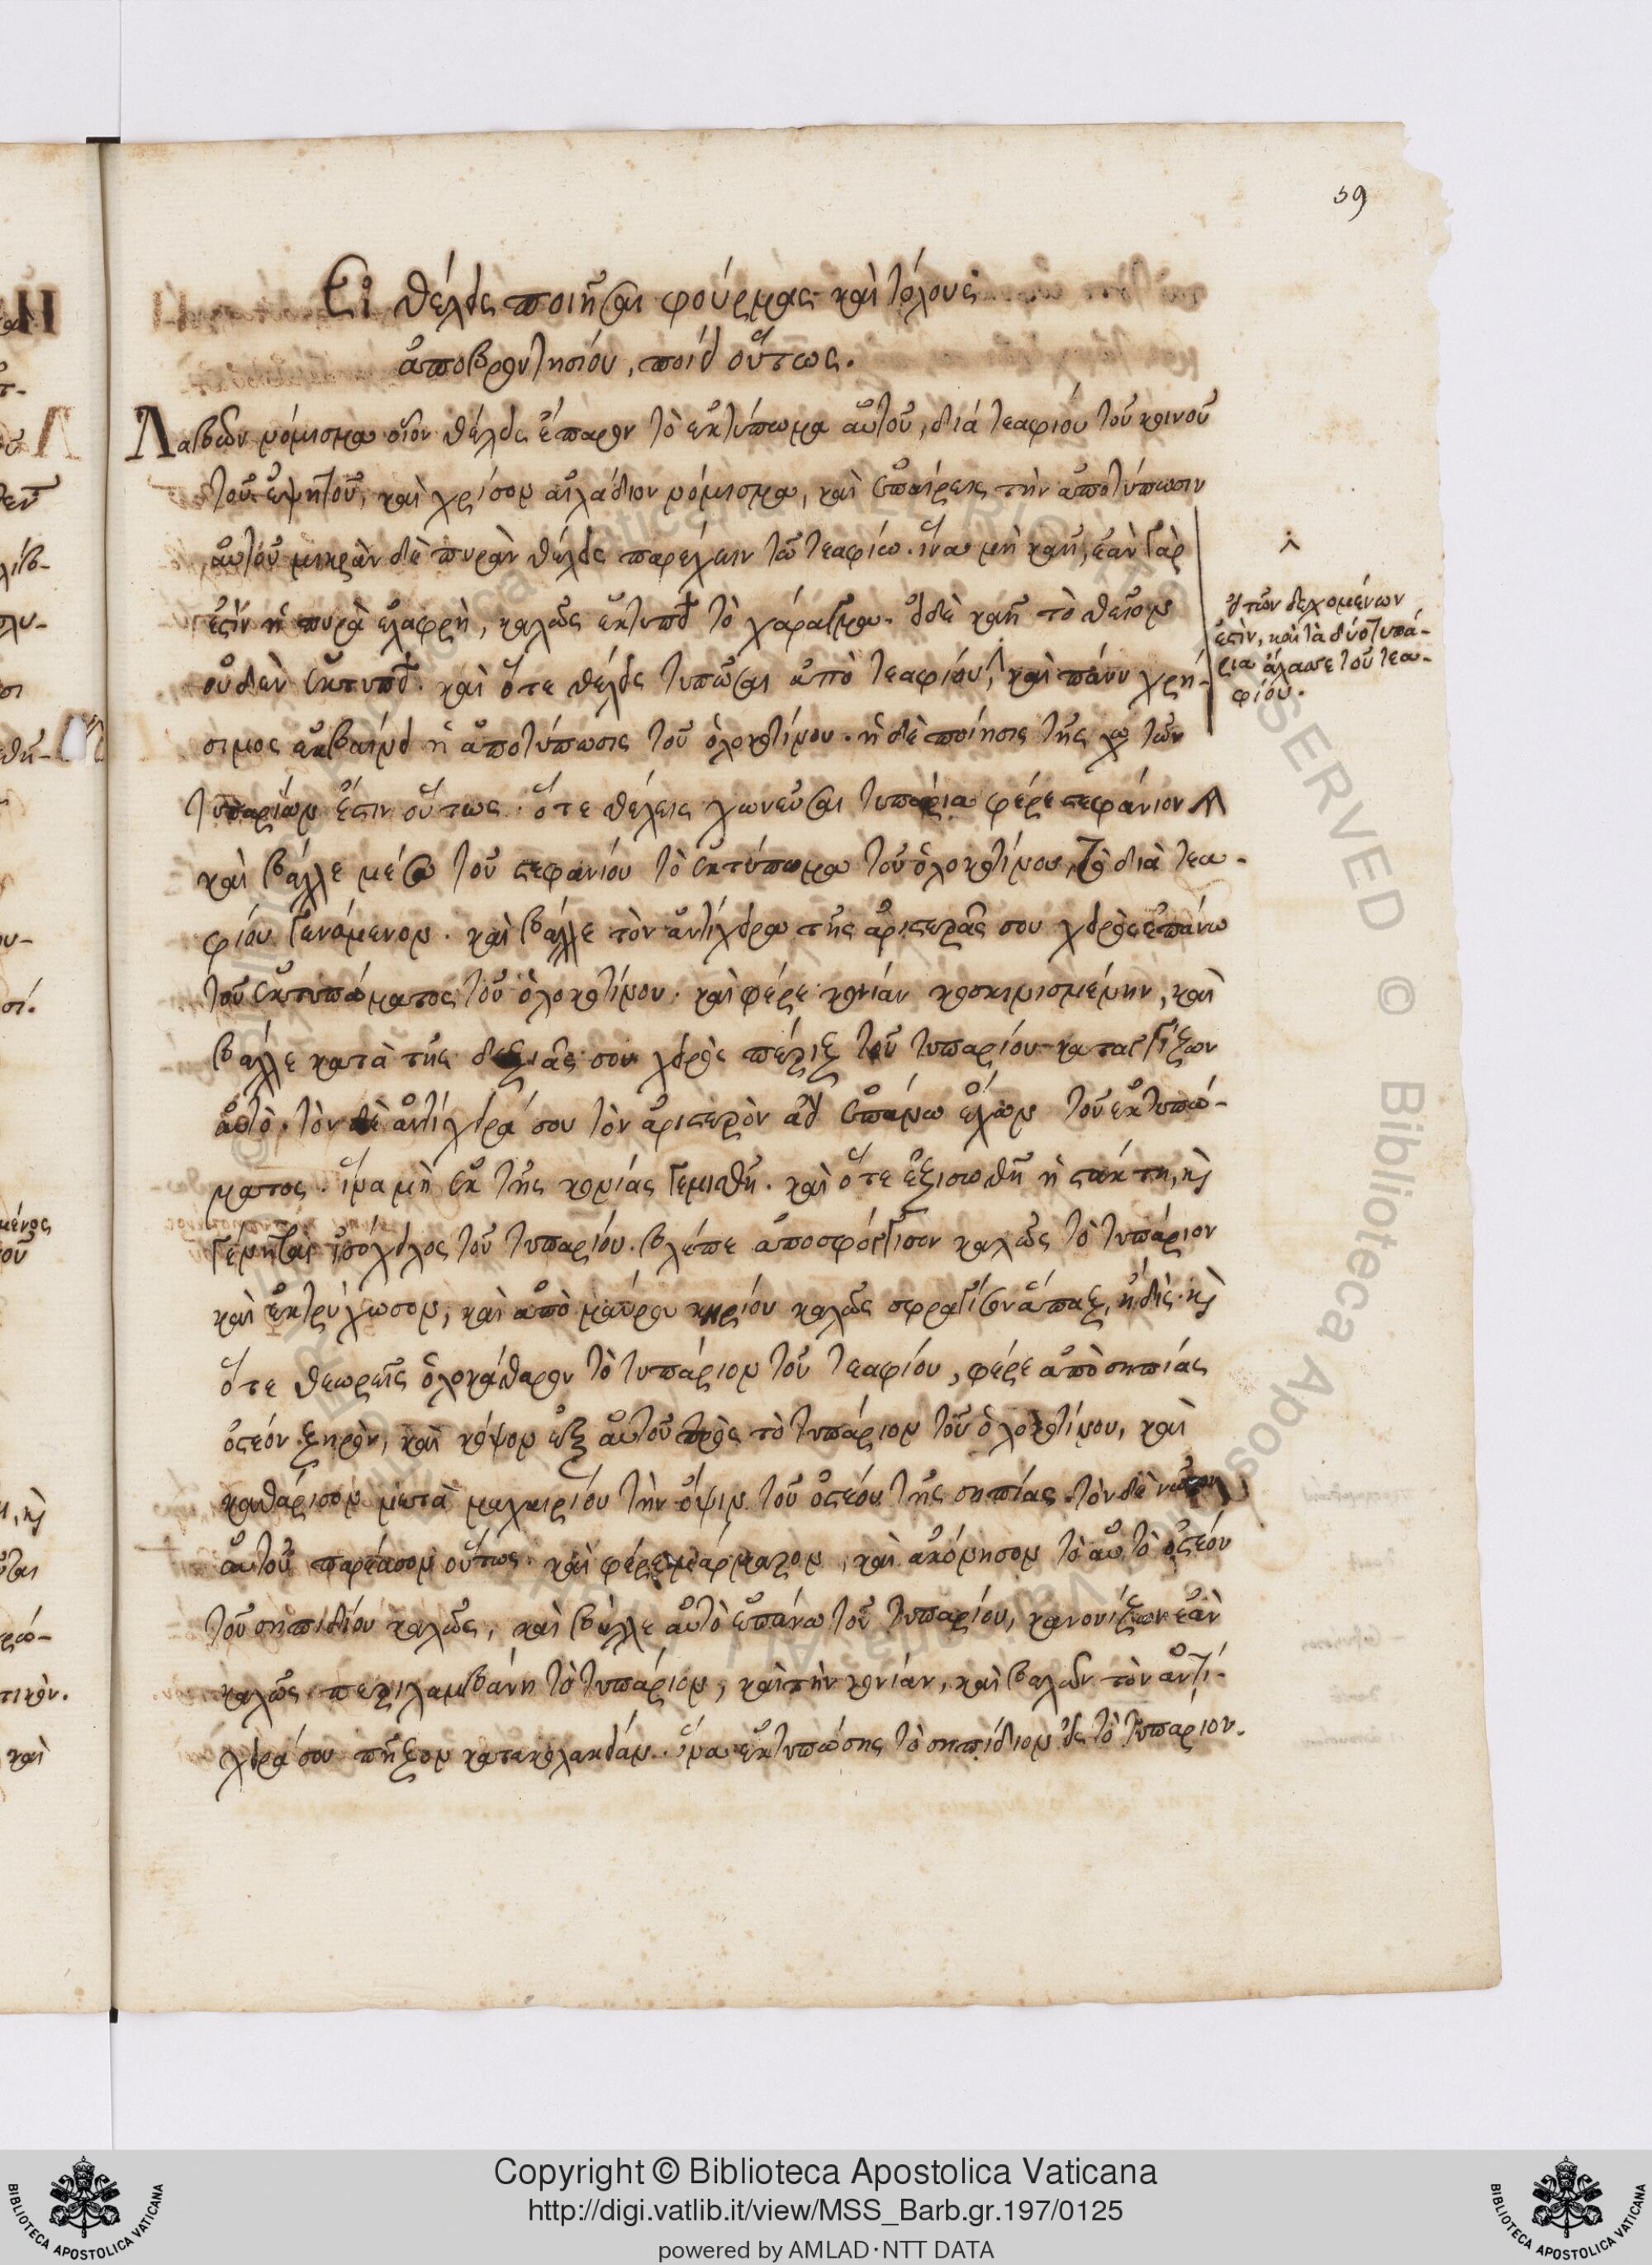 59
Εἰ θέλεις ποιῆσαι φούρμας καὶ τύλους
ἀποβροντησίου, ποίει οὕτως.
Λαβὼν νόμισμα οἷον θέλεις ἔπαρον τὸ ἐκτύπωμα αὐτοῦ, διὰ τεαφίου τοῦ κοινοῦ
τοῦ ἑψητοῦ, καὶ χρίσον ἐλάδιον νόμισμα, καὶ ἐπαίρεις τὴν ἀποτύπωσιν
αὐτοῦ μικρὰν δὲ πυρὰν θέλεις παρέχειν τῷ τεαφίω. ἵνα μὴ καῆ, ἐὰν γὰρ
ἐστὶν ἡ πυρὰ ἐλαφρὴ, καλῶς ἐκτυποῖ τὸ χάραγμα. εἰ δὲ καῆ τὸ θεῖον
οὐδὲν ἐκτυποῖ. καὶ ὅτε θέλεις τυπῶσαι ἀπὸ τεαφίου, καὶ πάνυ χρή-
σιμος ἐκβαίνει ἡ ἀποτύπωσις τοῦ ὁλοκοτίνου. ἡ δὲ ποίησις τῆς τῶν
τυπαρίων ἔστιν οὕτως. ὅτε θέλεις χωνεῦσαι τυπάρια φέρε στεφάνιον
καὶ βάλλε μέσω τοῦ στεφανίου τὸ ἐκτύπωμα τοῦ ὁλοκοτίνου, τὸ διὰ τεα-
φίου γενόμενον. καὶ βάλλε τὸν ἀντίχειρα τῆς ἀριστερᾶς σου χειρὸς ἐπάνω
τοῦ ἐκτυπώματος τοῦ ὁλοκοτίνου. καὶ φέρε κονίαν κοσκινισμένην, καὶ
βάλλε κατὰ τῆς δεξιᾶς σου χειρὸς πέριξ τοῦ τυπαρίου καταγγίζων
αὐτὸ. τὸν δὲ ἀντίχειρά σου τὸν ἀριστερὸν ἀεὶ ἐπάνω ἔχων τοῦ ἐκτυπώ-
ματος. ἵνα μὴ ἐκ τῆς κονίας γεμισθῆ. καὶ ὅτε ἐξισωθῆ ἡ στάκτη, κὶ
γένηται ἰσόχειλος τοῦ τυπαρίου. βλέπε ἀποσφόγγισον καλῶς τὸ τυπάριον
καὶ ἐκτρύχωσον, καὶ ἀπὸ μαύρου κηρίου καλῶς σφράγισον ἅπαξ, ἢ δὶς. κὶ
ὅτε θεωρεῖς ὁλοκάθαρον τὸ τυπάριον τοῦ τεαφίου, φέρε ἀπὸ σηπίας
ὀστέον ξηρὸν, καὶ κόψον ἐξ αὐτοῦ πρὸς τὸ τυπάριον τοῦ ὁλοκοτίνου, καὶ
καθάρισον μετὰ μαχαιρίου τὴν ὄψιν τοῦ ὀστέου τῆς σηπίας. τὸν δὲ νῶτον
αὐτοῦ παρέασον οὕτως. καὶ φέρε μάρμαρον, καὶ ἀκόνησον τὸ αὐτὸ ὀστέον
τοῦ σηπιδίου καλῶς, καὶ βάλλε αὐτὸ ἐπάνω τοῦ τυπαρίου, κανονίζων ἐὰν
καλῶς περιλαμβάνη τὸ τυπάριον, καὶ τὴν κονίαν, καὶ βαλὼν τὸν ἀντί-
χειρά σου πῆξον κατακόλακείαν. ἵνα ἐκτυπώσης τὸ σηπίδιον εἰς τὸ τυπάριον.
ἐκ τῶν δεχομένων
ἐστὶν, καὶ τὰ δύο τυπά-
ρια ἄλασσε τοῦ τεα-
φίου.
Copyright © Biblioteca Apostolica Vaticana
http://digi.vatlib.it/view/MSS_Barb.gr.197/0125
powered by AMLAD·NTT DATA
BIBLIOTECA APOSTOLICA VATICANA
BIBLIOTECA APOSTOLICA VATICANA